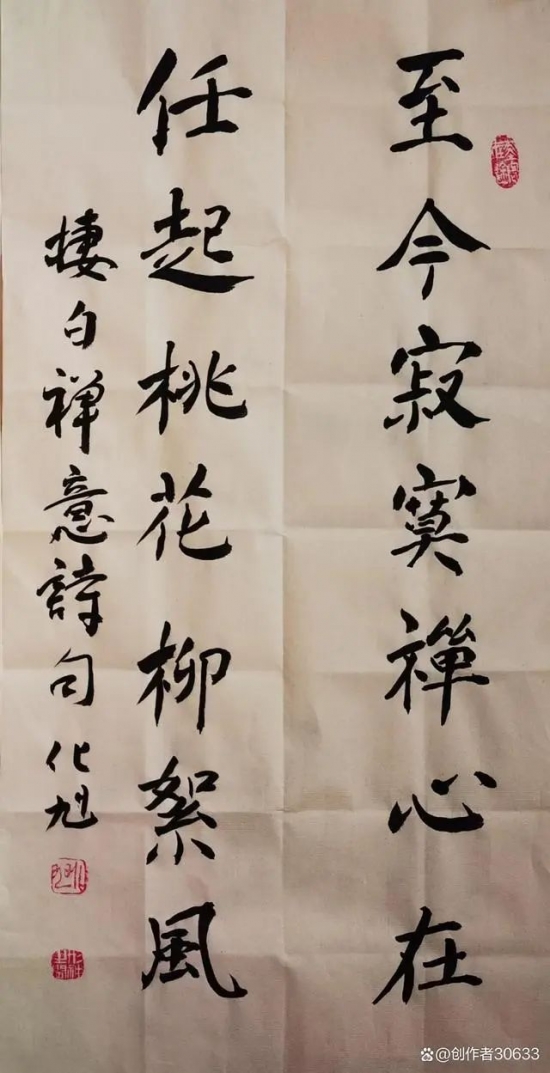 至今寂寞禪心在
任起桃花柳絮風
棲白禪意詩句 化旭
@创作者30633